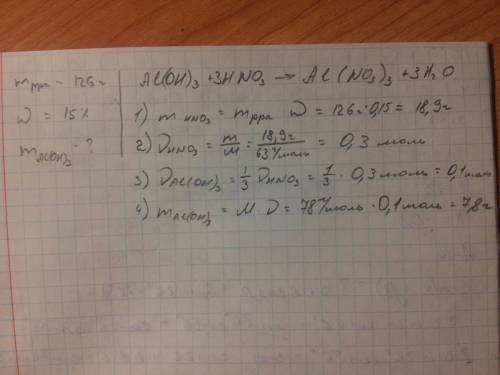 m р-ра = 126 г
Al(OH)₃ + 3HNO₃ → Al(NO₃)₃ + 3H₂O
W = 15%
1) m HNO₃ = m р-ра W = 126 г · 0,15 = 18,9 г
m Al(OH)₃ - ?
2) ν HNO₃ = m/M = 18,9 г / 63 г/моль = 0,3 моль
3) ν Al(OH)₃ = 1/3 ν HNO₃ = 1/3 · 0,3 моль = 0,1 моль
4) m Al(OH)₃ = M ν = 78 г/моль · 0,1 моль = 7,8 г